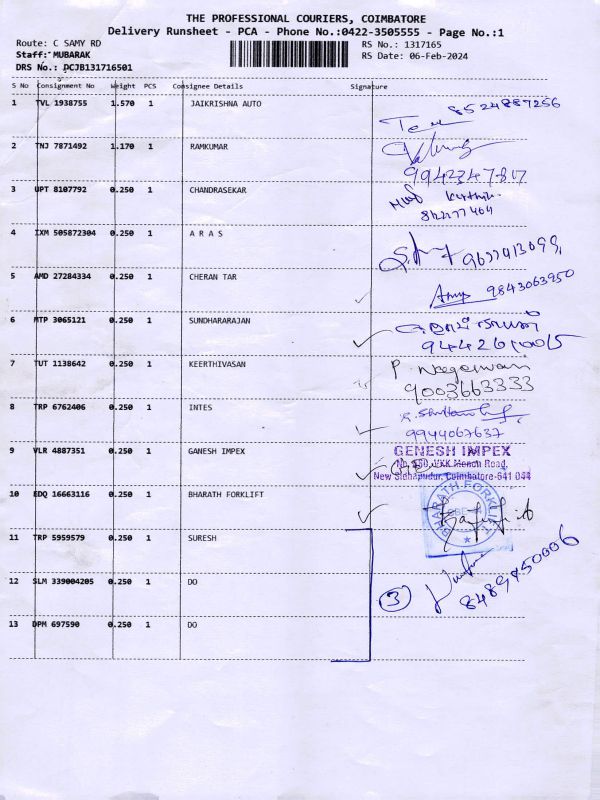 THE PROFESSIONAL COURIERS, COIMBATORE
Delivery Runsheet - PCA - Phone No.:0422-3505555 - Page No.:1
Route: C SAMY RD
RS No.: 1317165
Staff: MUBARAK
RS Date: 06-Feb-2024
DRS No.: PCJB131716501
S No Consignment No Weight PCS Consignee Details Signature
1 TVL 1938755 1.570 1 JAIKRISHNA AUTO
8524887256
2 TNJ 7871492 1.170 1 RAMKUMAR
3 UPT 8107792 0.250 1 CHANDRASEKAR
4 IXM 505872304 0.250 1 A R A S
5 AMD 27284334 0.250 1 CHERAN TAR
9843063950
6 MTP 3065121 0.250 1 SUNDHARARAJAN
7 TUT 1138642 0.250 1 KEERTHIVASAN
9003663333
8 TRP 6762406 0.250 1 INTES
9944067637
9 VLR 4887351 0.250 1 GANESH IMPEX
GENESH IMPEX
New Sidhapudur, Coimbatore-641 044
10 EDQ 16663116 0.250 1 BHARATH FORKLIFT
BHARATH FORKLIFT
11 TRP 5959579 0.250 1 SURESH
12 SLM 339004205 0.250 1 DO
3
13 DPM 697590 0.250 1 DO